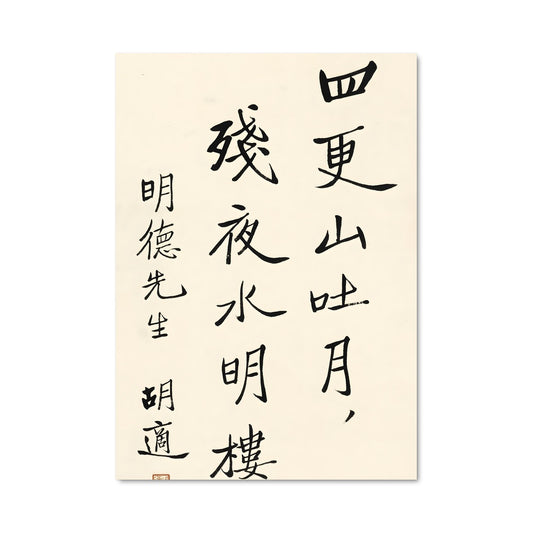 四更山吐月，
殘夜水明樓
明德先生 胡適